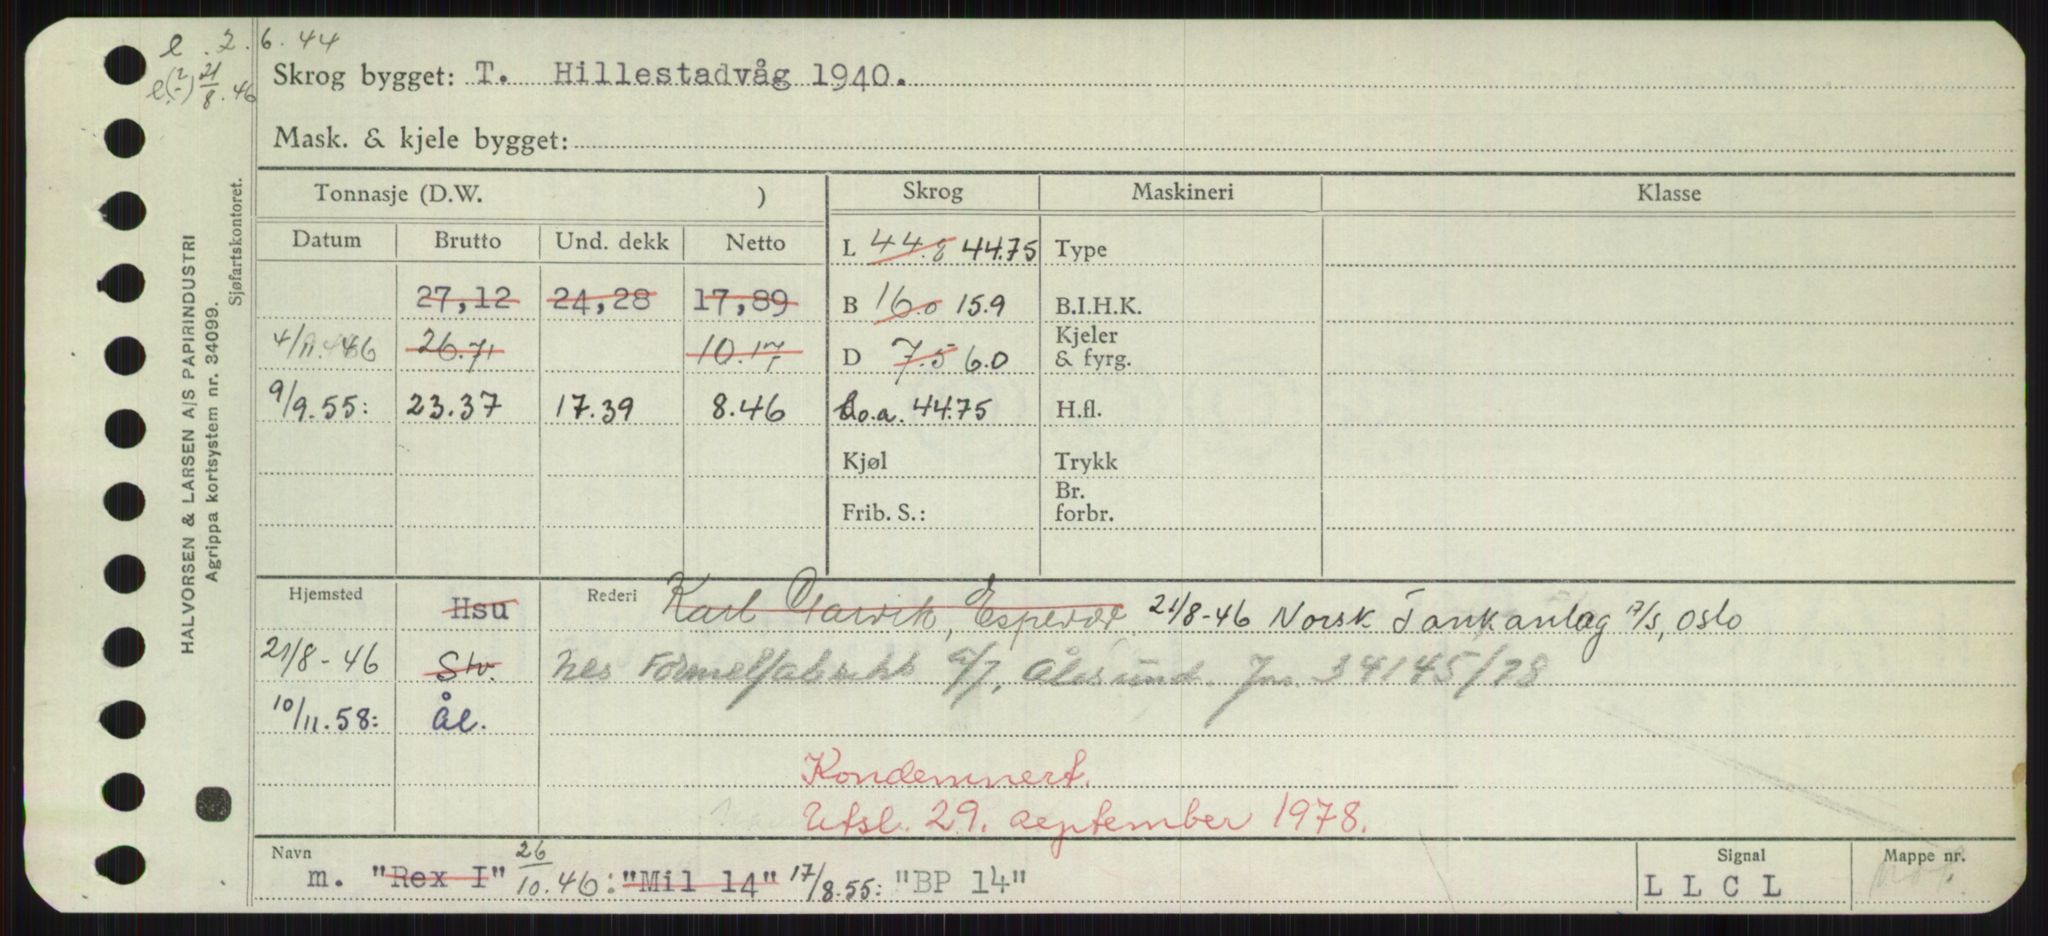 e . 2.6.44
e(?) 21/8.46
Skrog bygget: T. Hillestadvåg 1940.
Mask. & kjele bygget:
Tonnasje (D.W. ) Skrog Maskineri Klasse
Datum Brutto Und. dekk Netto L 44.8 44.75 Type
27,12 24,28 17,89 B 16.0 15.9 B.I.H.K.
4/11.46 26.71 10.17 D 7.5 6.0 Kjeler & fyrg.
9/9.55: 23.37 17.39 8.46 L.o.a. 44.75 H.fl.
Kjøl Trykk
Frib. S.: Br. forbr.
Hjemsted Hsu Rederi Karl Espevær 21/8-46 Norsk Tankanlag A/S, Oslo
21/8-46 Stv. A/S, Ålesund. Jnr. 34145/78
10/11.58: Ål.
Kondemnert.
Utsl. 29. september 1978.
Navn Signal Mappe nr.
m. "Rex I" 26/10.46: "Mil 14" 17/8.55: "BP 14" L L C L
HALVORSEN & LARSEN A/S PAPIRINDUSTRI
Agrippa kortsystem nr. 34099.
Sjøfartskontoret.